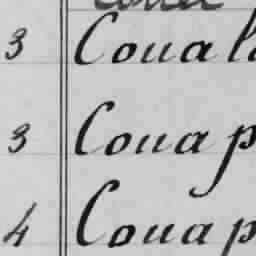 3 Coual
3 Couap
4 Couap